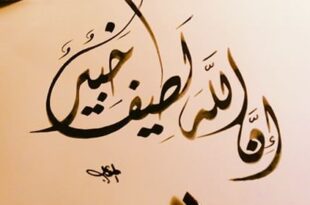 إِنَّ اللَّهَ لَطِيفٌ خَبِيرٌ